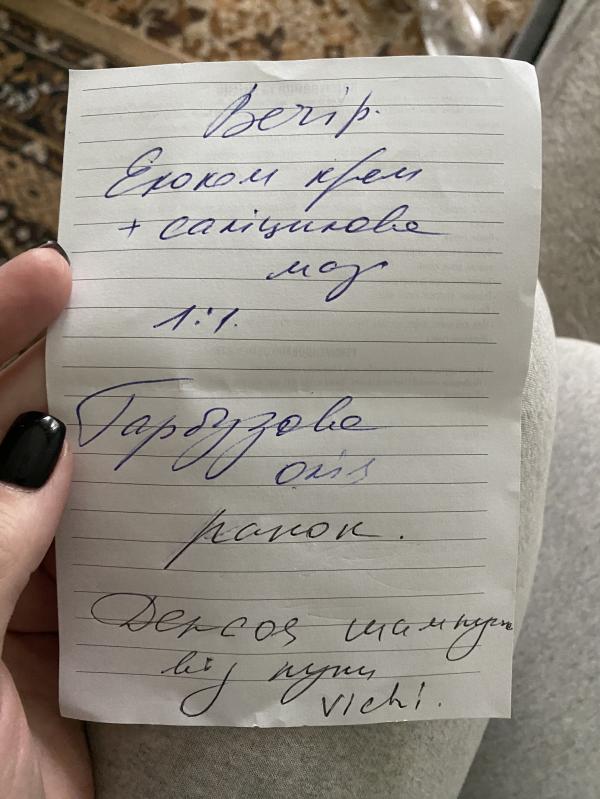 Вечір.
Еколом крем
+ саліцилова
мазь
1:1.
Гарбузова
олія
ранок.
шампунь
від лупи
vichi.